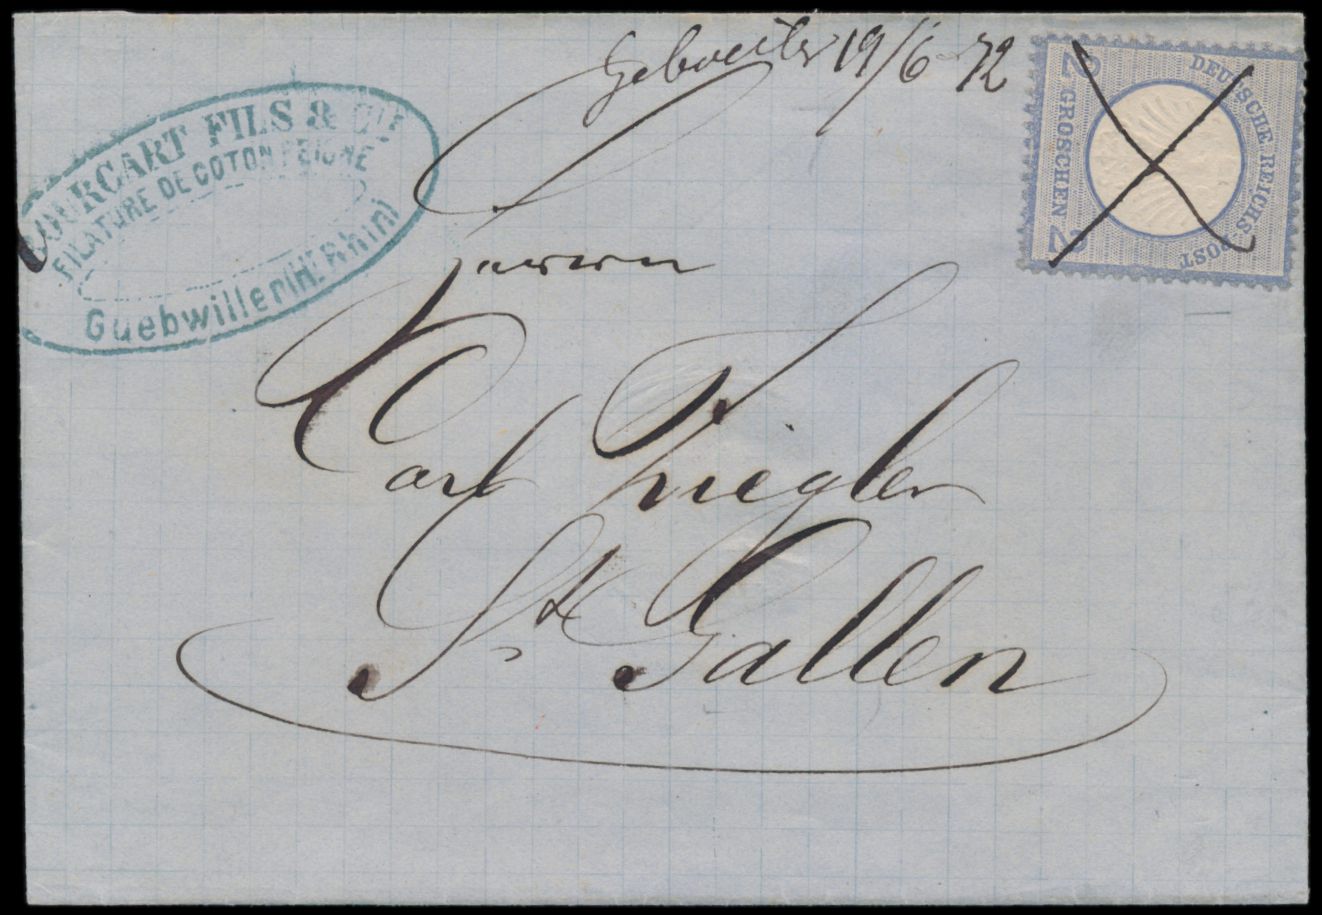 Gebweiler 19/6 72
BOURCART FILS & CIE
FILATURE DE COTON PEIGNE
Guebwiller (Ht Rhin)
2 GROSCHEN 2
DEUTSCHE REICHS-POST
Herrn
Carl Ziegler
St Gallen